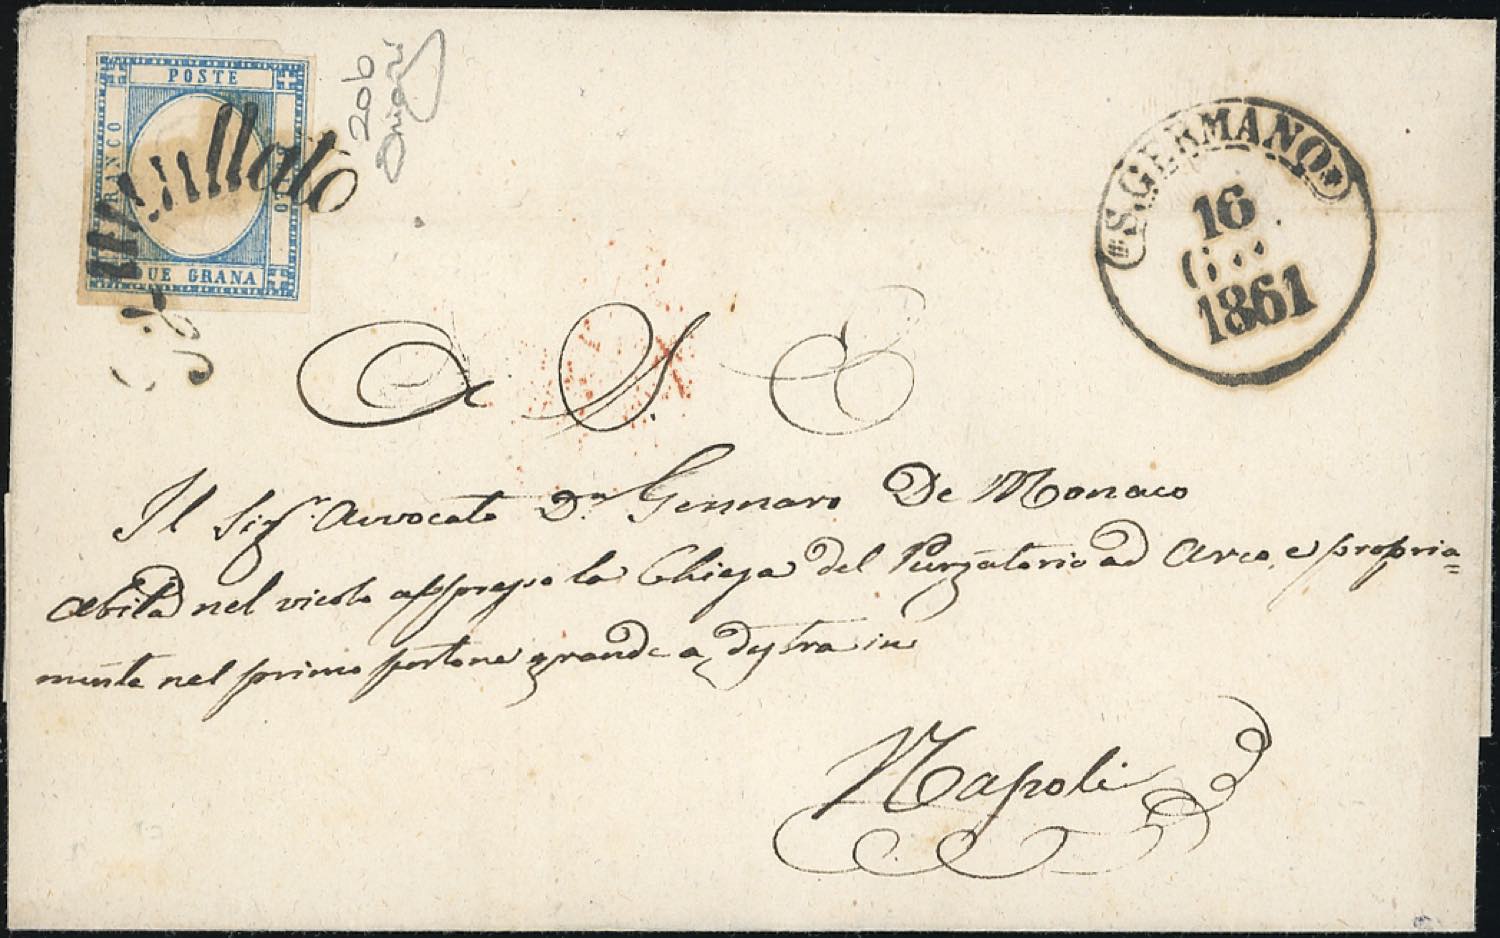 POSTE
FRANCO
BOLLO
DUE GRANA
Annullato
20b
S. GERMANO
16
1861
A S. E
Il Sigr. Avvocato Dn Gennaro De Monaco
abita nel vicolo appresso la Chiesa del Purgatorio ad Arco, e propria=
mente nel primo portone grande a destra in
Napoli